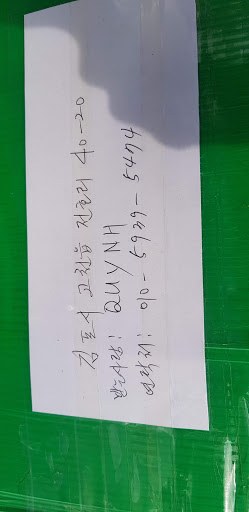 김포시 고촌읍 전호리 40-20
받는사람: QUYNH
연락처: 010-5939-5474